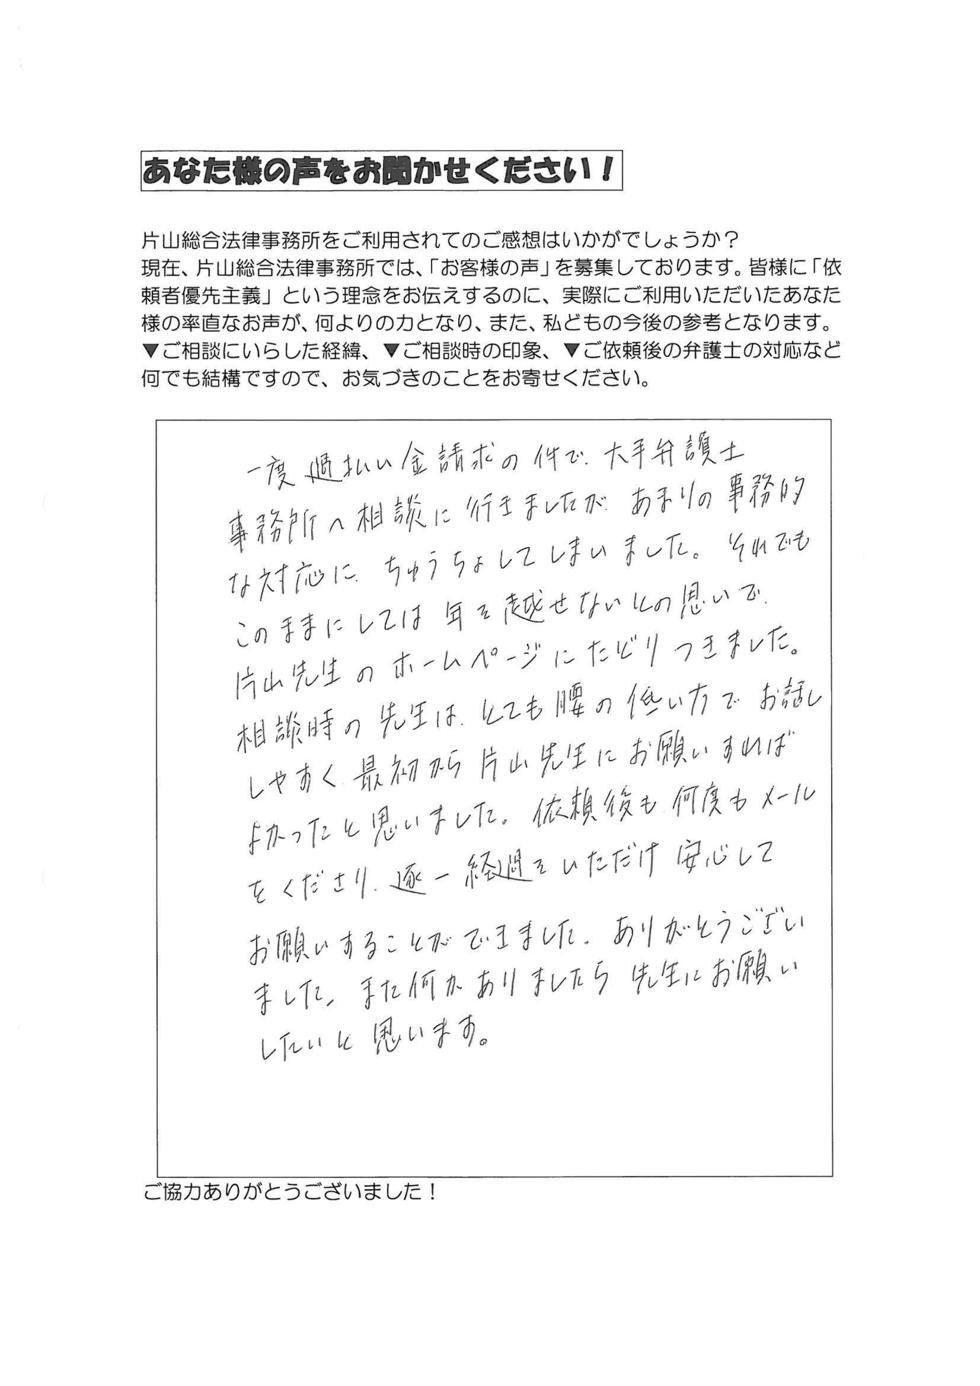 あなた様の声をお聞かせください！
片山総合法律事務所をご利用されてのご感想はいかがでしょうか？
現在、片山総合法律事務所では、「お客様の声」を募集しております。皆様に「依
頼者優先主義」という理念をお伝えするのに、実際にご利用いただいたあなた
様の率直なお声が、何よりの力となり、また、私どもの今後の参考となります。
▼ご相談にいらした経緯、▼ご相談時の印象、▼ご依頼後の弁護士の対応など
何でも結構ですので、お気づきのことをお寄せください。
一度過払い金請求の件で、大手弁護士
事務所へ相談に行きましたが、あまりの事務的
な対応に、ちゅうちょしてしまいました。それでも
このままにしては年を越せないとの思いで、
片山先生のホームページにたどりつきました。
相談時の先生は、とても腰の低い方でお話し
しやすく、最初から片山先生にお願いすれば
よかったと思いました。依頼後も何度もメール
をくださり、逐一経過をいただけ安心して
お願いすることができました。ありがとうござい
ました。また何かありましたら先生にお願い
したいと思います。
ご協力ありがとうございました！